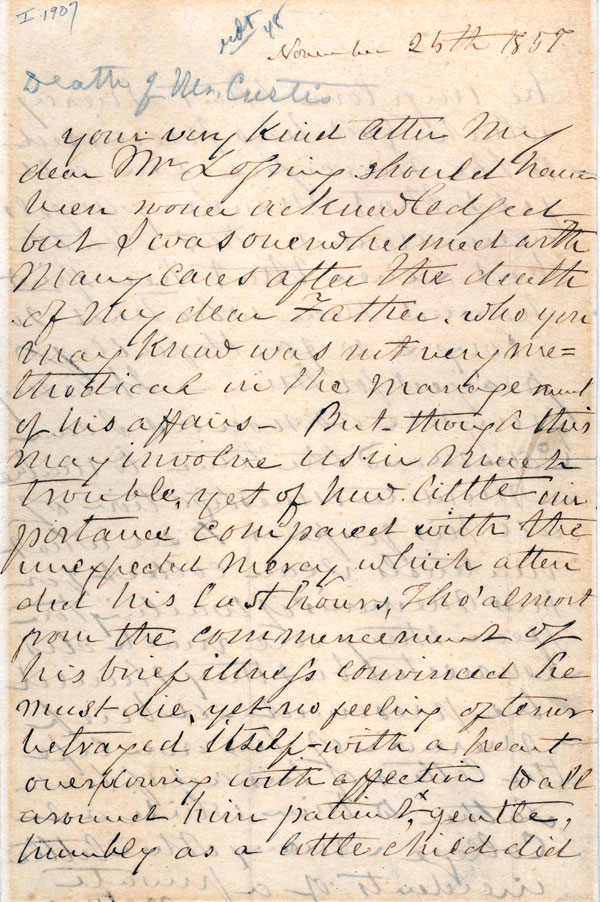 I 1907
Ack^d 48
November 25th 1857
Death of Mr. Custis
your very kind letter my
dear Mr Lossing should have
been sooner acknowledged
but I was overwhelmed with
Many cares after the death
of my dear Father. who you
may know was not very me=
thodical in the management
of his affairs - But though this
may involve us in much
trouble, yet of how little im
portance compared with the
unexpected mercy which atten
ded his last hours, Tho' almost
from the commencement of
his brief illness convinced he
must die, yet no feeling of terror
betrayed itself - with a heart
overflowing with affection to all
around him patient, & gentle,
humbly as a little child did